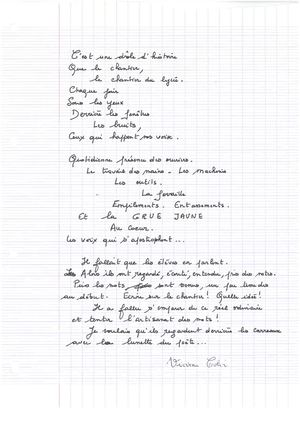 C'est une drôle d'histoire
Que le chantier,
le chantier du lycée.
Chaque jour
Sous les yeux
Derrière les fenêtres
Les bruits,
Ceux qui happent nos voix.
Quotidienne présence des ouvriers.
Le travail des mains - Les machines
Les outils.
La ferraille
Empilements. Entassements.
Et la GRUE JAUNE
Au coeur.
Les voix qui s'apostrophent...
Il fallait que les élèves en parlent.
Alors ils ont regardé, écouté, entendu, pris des notes.
Puis les mots sont venus, un peu lourds
au début. Ecrire sur le chantier ! Quelle idée !
Il a fallu s'emparer de ce réel ordinaire
et tenter l'artisanat des mots !
Je voulais qu'ils regardent derrière les carreaux
avec les lunettes du poète...